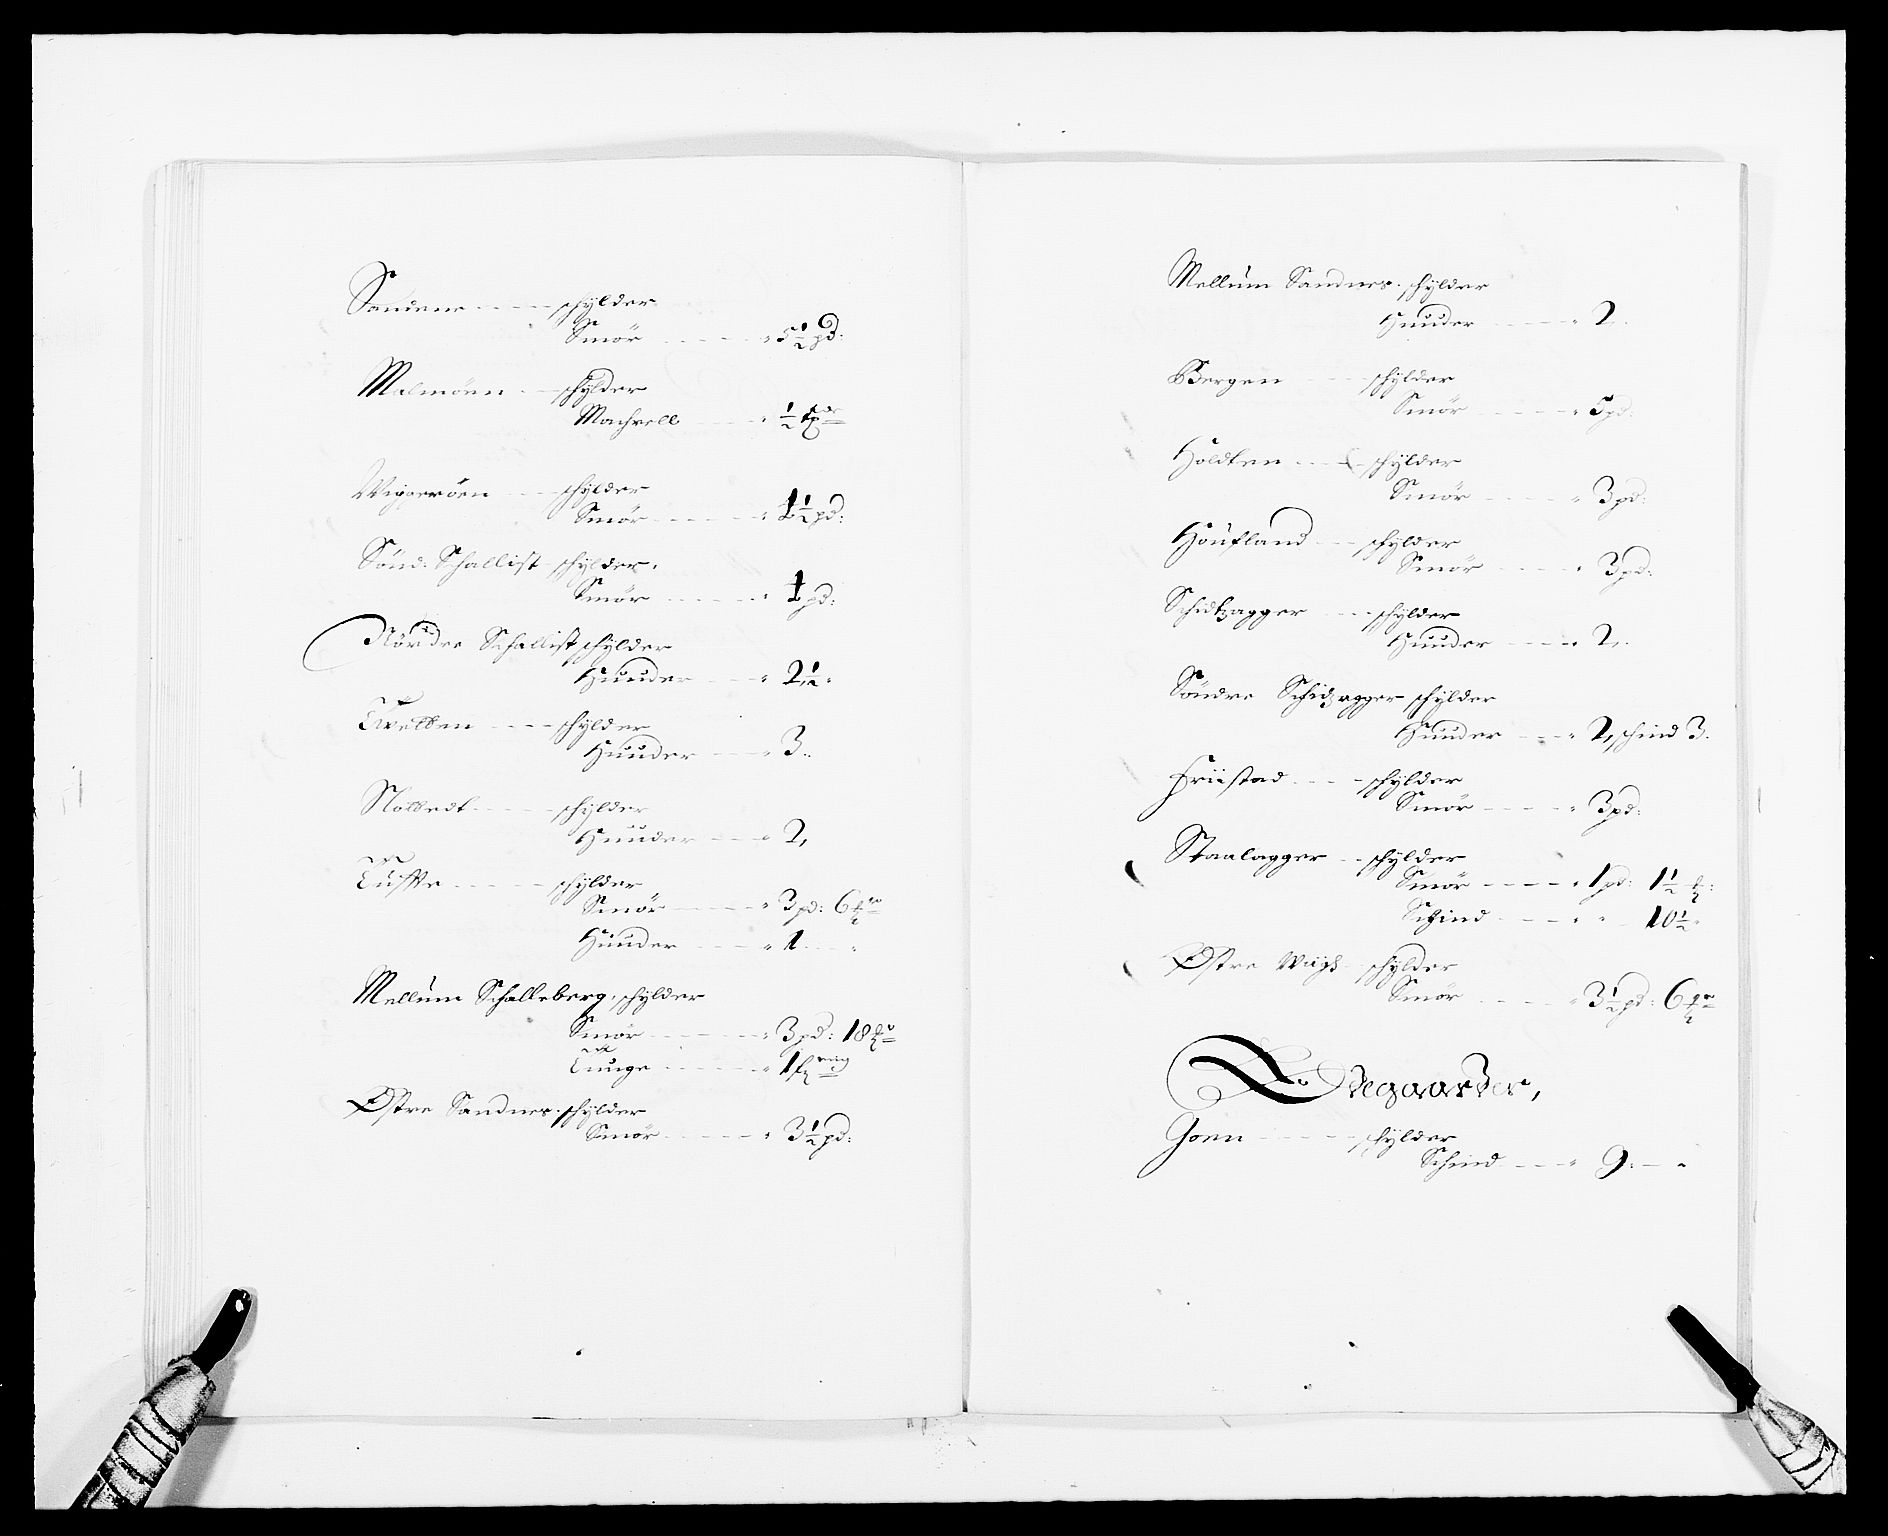 Sandene - - - - schylder
Smör - - - - - 5½ pd:
Malmöen - - schylder
Machrell - - - ½ tr
Wiggeröen - - - schylder
Smör - - - - - 1½ pd:
Sönd: Schallist schylder.
Smör - - - - - 1 pd:
Nördre Schallist schylder
Huuder - - - 2½.
Tvelten - - - - schylder
Huuder - - - 3.
Holtedt - - - - schylder
Huuder - - - 2,
Tuffte - - - - - schylder
Smör - - - - 3 pd: 6
Huuder - - - 1 - -
Mellum Schalleberg, schylder
Smör - - - - - 3 pd: 18
Tunge - - - - - 1
Østre Sandnes. schylder
Smör - - - - - 3½ pd:
Mellum Sandnes. schylder
Huuder - - - - 2.
Bergen - - - schylder
Smör - - - - - 5 pd:
Holdten - - - schylder
Smör - - - - - 3 pd:
Houfland - - - schylder
Smör - - - - 3 pd:
Schidtzagger - - - schylder
Huuder - - - - 2,
Söndre Schidzagger schylder
Huuder - - - 2, schind 3.
Friistad - - - - schylder
Smör - - - - 3 pd:
Staalagger - - schylder
Smör - - - - 1 pd: 1½
Schind - - - - - 10½
Østre Wiigh - schylder
Smör - - - - 3½ pd: 6
Ødegaarder,
Goen - - - - - schylder
Schind - - - 9. - -